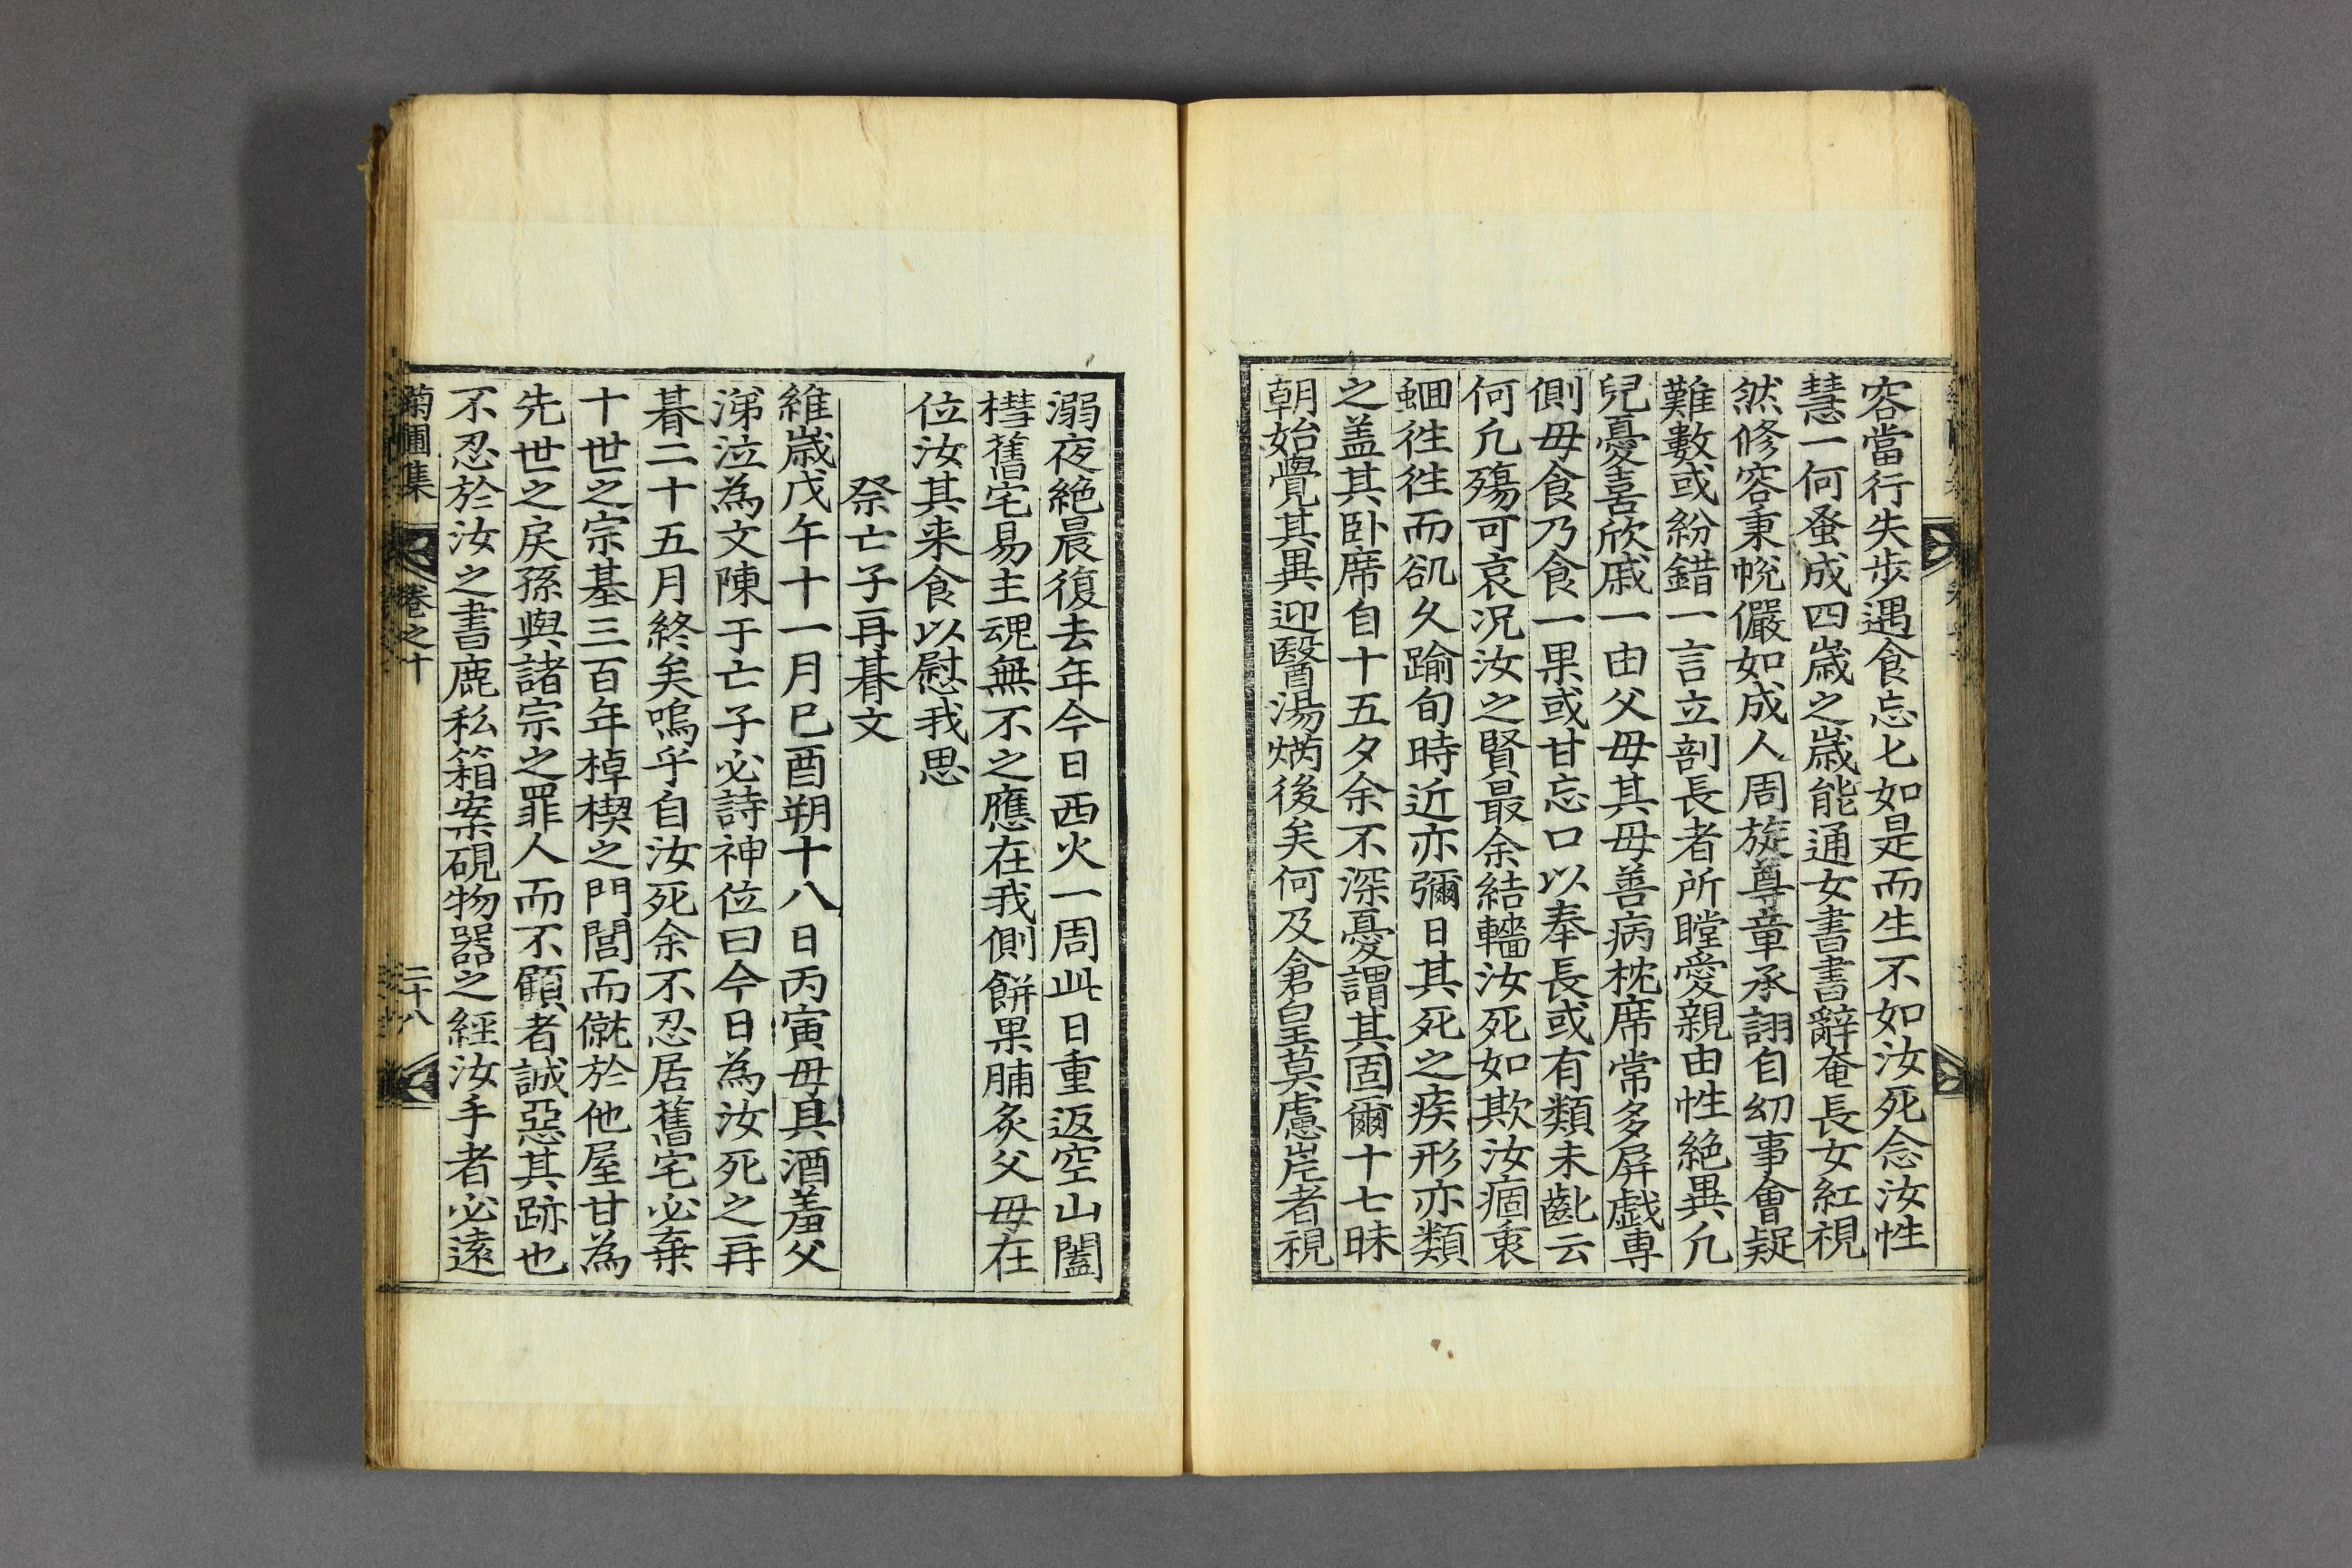 容當行失步遇食忘匕如是而生不如汝死念汝性
慧一何蚤成四歲之歲能通女書書辭奄長女紅視
然修容秉帨儼如成人周旋尊章承詡自幼事會疑
難數或紛錯一言立剖長者所瞠愛親由性絶異凢
兒憂喜欣戚一由父母其母善病枕席常多屏戱專
側母食乃食一果或甘忘口以奉長或有類未齔云
何凢殤可哀況汝之賢最余結轖汝死如欺汝痼衷
蛔徃徃而欲久踰旬時近亦彌日其死之疾形亦類
之盖其卧席自十五夕余不深憂謂其固爾十七昧
朝始覺其異迎醫湯焫後矣何及倉皇莫慮岸者視
溺夜絶晨復去年今日西火一周此日重返空山闔
槥舊宅易主魂無不之應在我側餠果脯炙父母在
位汝其来食以慰我思
祭亡子再朞文
維歲戊午十一月己酉朔十八日丙寅母具酒羞父
涕泣為文陳于亡子必詩神位曰今日為汝死之再
朞二十五月終矣嗚乎自汝死余不忍居舊宅必棄
十世之宗基三百年棹楔之門閭而僦於他屋甘為
先世之戾孫與諸宗之罪人而不顧者誠惡其跡也
不忍於汝之書鹿私箱案硯物器之經汝手者必遠
菊圃集 卷之十 二十八